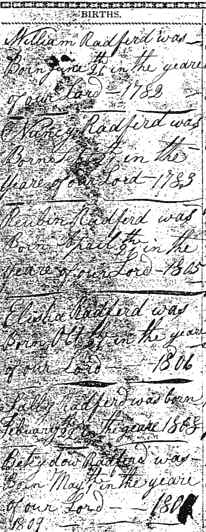 BIRTHS.
William Radferd was
Born June in the yeare
of our Lord - 1782
Nancy Radferd was
Borne in the
Yeare of our Lord - 1783
Rubin Radferd was
Born Apail 9th in the
yeare of our Lord - 1805
Elisha Radferd was
Born Oct in the yeare
of our Lord - 1806
Sally Radferd was born
February the yeare 1808
Betsy dow Radferd was
Born May in the yeare
of our Lord
1809